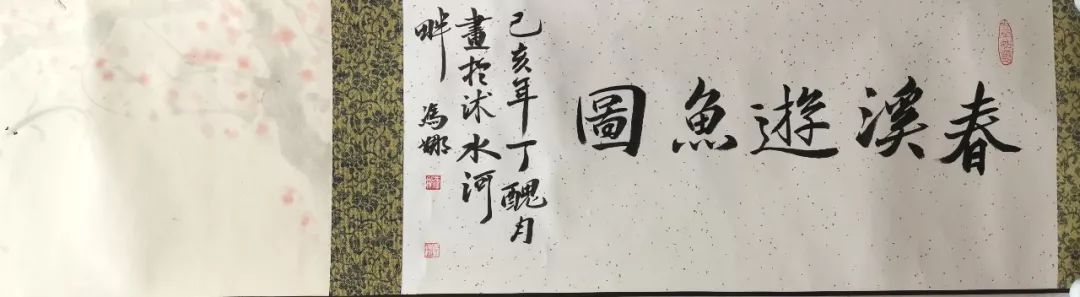 春溪遊魚圖
己亥年丁醜月
畫於沭水河
畔 馮娜